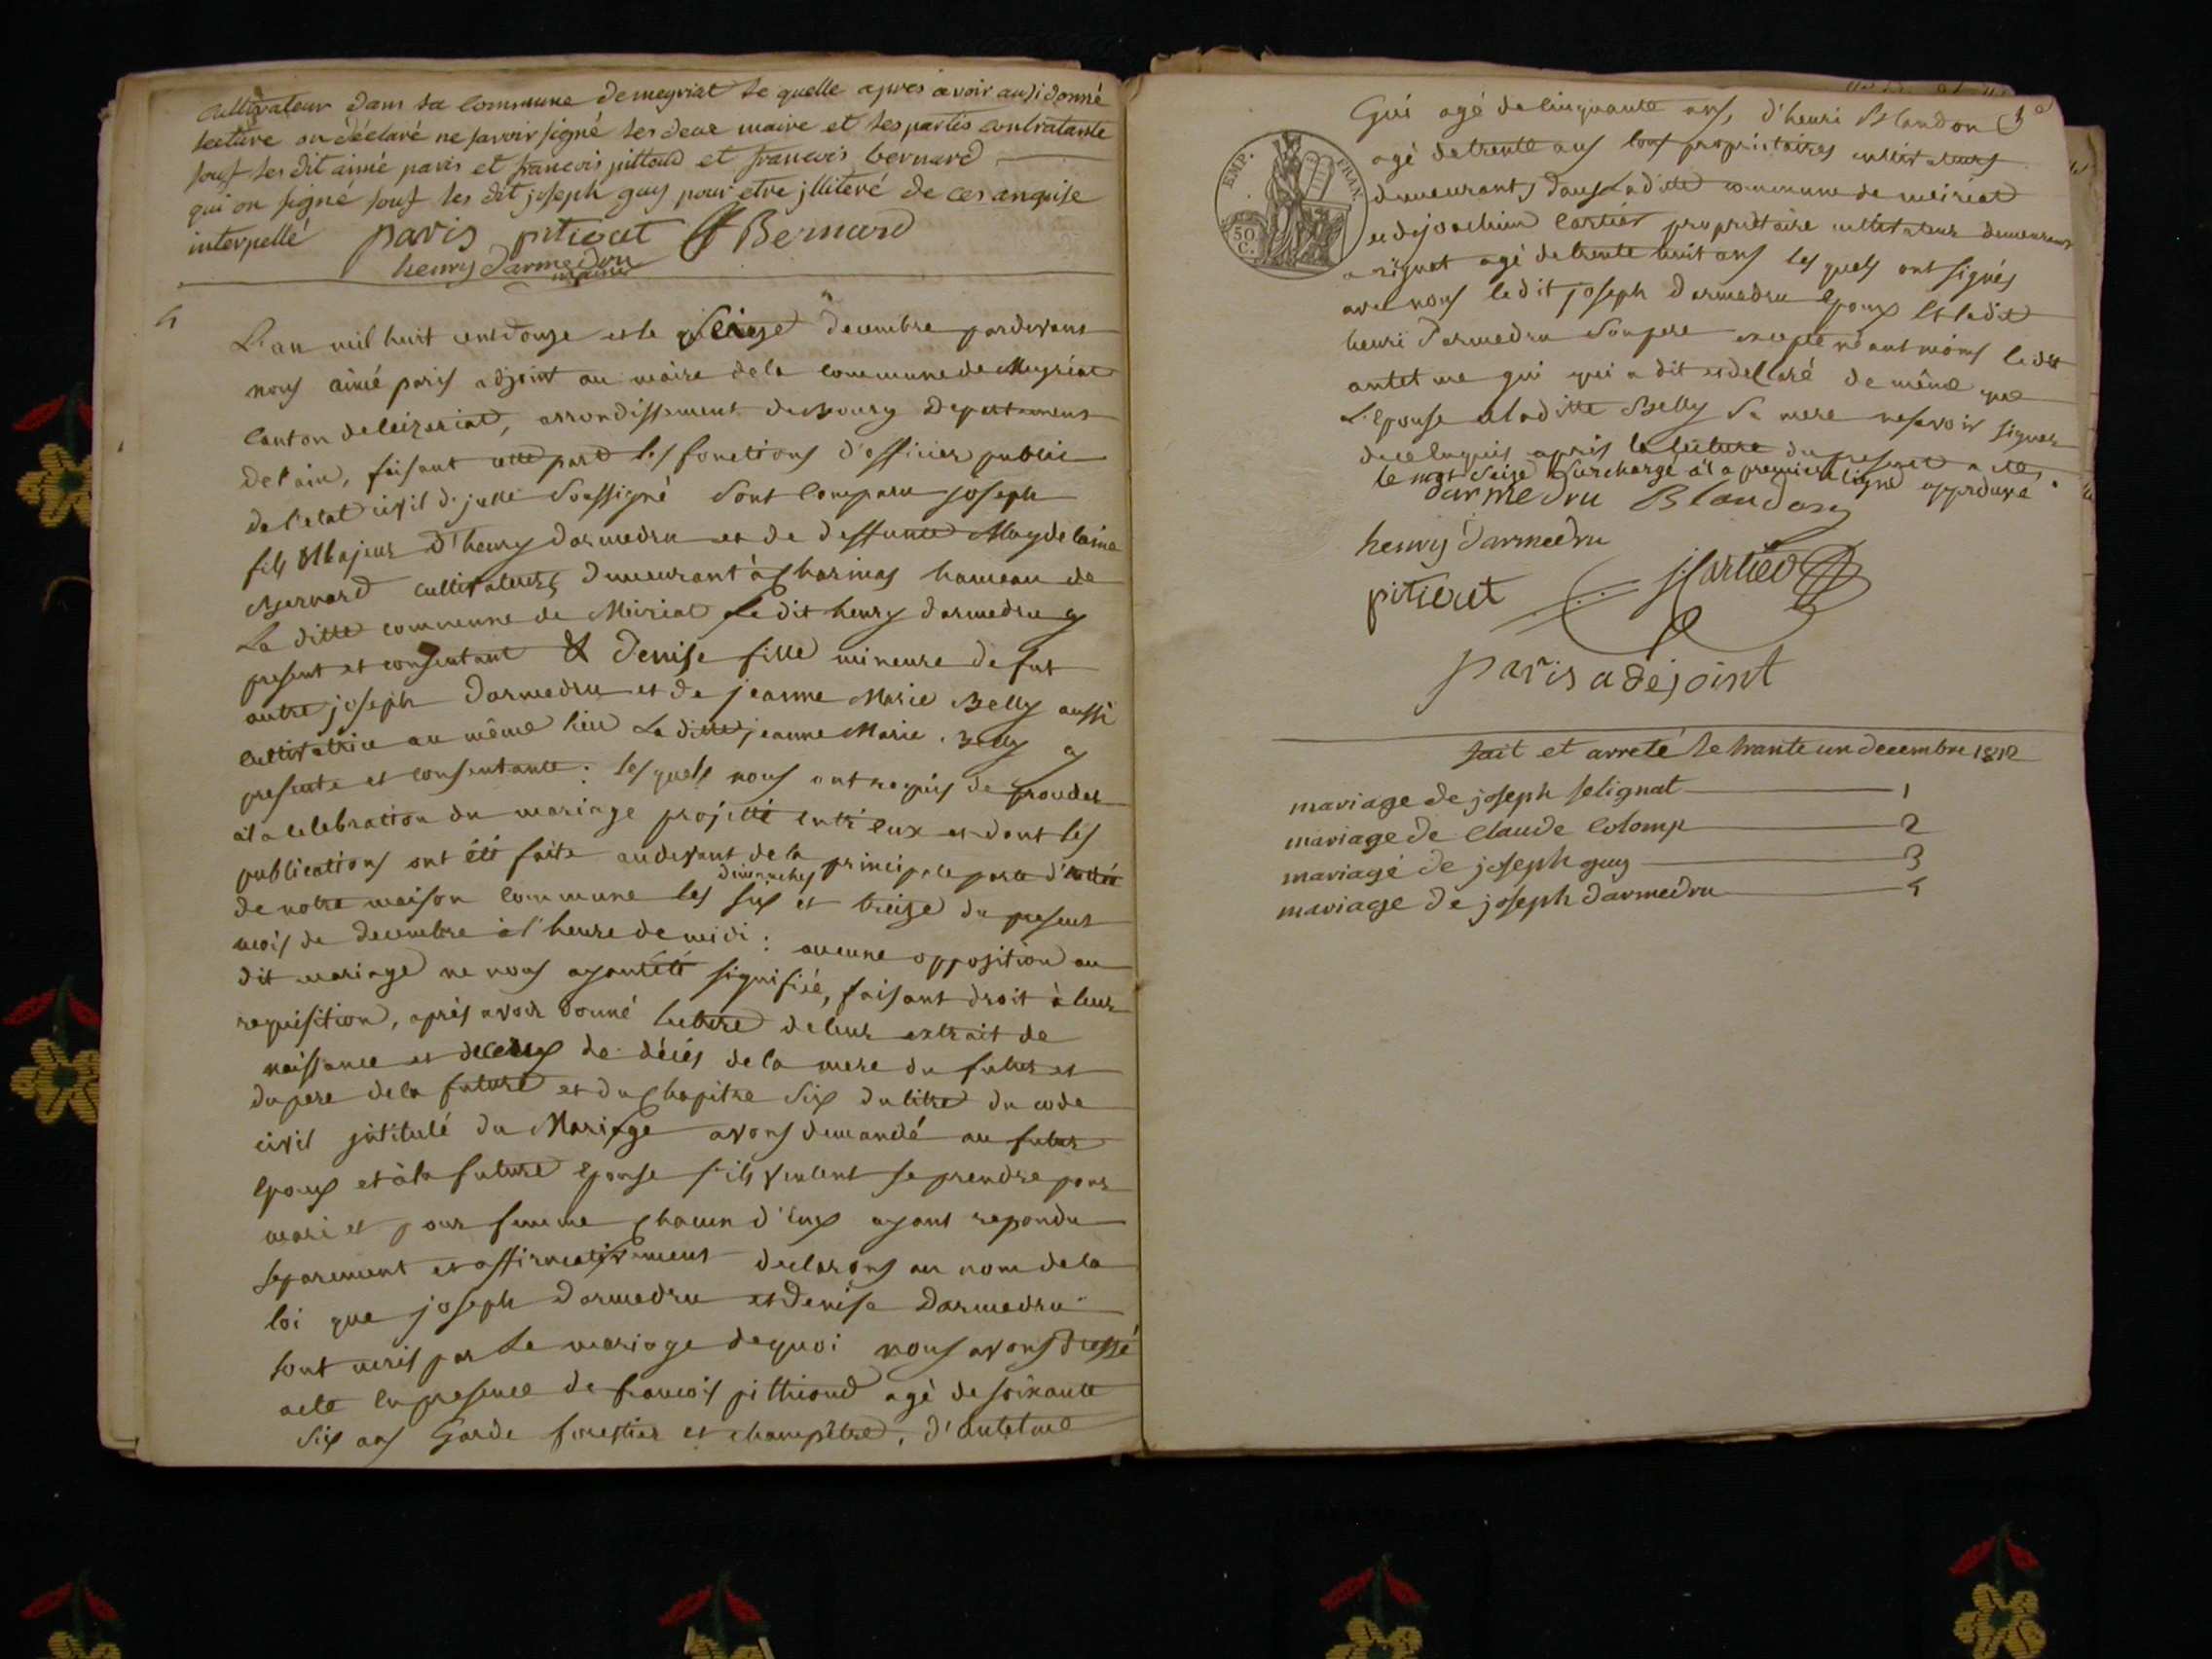 cultivateur dans la commune de meyriat le quelle apres avoir ausi donné
lecture on déclaré ne savoir signé les deux maire et les partis contratante
souf les dit aimé paris et francois pittoud et francois bernard
qui on signé souf les dit joseph guy pour etre jlliteré de ces anquise
interpellé paris pitiout Bernard
henry darmedru
maire
4
L'an mil huit cent douze et le Seize decembre pardevant
nous aimé paris adjoint au maire de la commune de Meyriat
canton de ceizeriat, arrondissement de Bourg departement
de l'ain, faisant cette part les fonctions d'officier public
de l'etat civil d'jcelle Soussigné Sont comparu joseph
fils Majeur d'henry darmedru et de deffunte Magdelaine
Bernard cultivateurs demeurant à Charinas hameau de
La ditte commune de Meiriat Le dit henry darmedru y
present et consentant & Denise fille mineure de fut
autre joseph darmedru et de jeanne Marie Belly aussi
cultivatrice au même lieu La ditte jeanne Marie Belly y
presente et consentante : lesquels nous ont requis de proceder
à la celebration du mariage projetté entr'eux et dont les
publications ont été faite audevant de la principale porte d'entrée
de notre maison commune les dimanches six et treize du present
mois de decembre à l'heure de midi : aucune opposition au
dit mariage ne nous ayant été signifiée, faisant droit à leur
requisition, après avoir donné lecture de leur extrait de
naissance et de ceux de décés de la mere du futur et
du pere de la future et du Chapitre Six du titre du code
civil jntitulé du Mariage avons demandé au futur
epoux et à la future epouse s'ils veulent se prendre pour
mari et pour femme Chacun d'eux ayant repondu
separement et affirmativement declarons au nom de la
loi que joseph darmedru et Denise Darmedru
sont unis par le mariage de quoi nous avons dressé
acte en presence de francois pithioud agé de soixante
Six ans Garde forestier et champêtre, d'antelme
Gui agé de cinquante ans, d'henri Blandon 3e
agé de trente ans tous propriétaires cultivateurs
demeurants dans La ditte commune de meiriat
et de joachim Cartier propriétaire cultivateur demeurant
a rignat agé de trente huit ans les quels ont signés
avec nous le dit joseph darmedru epoux et le dit
henri Darmedru Son pere excepté néantmoins le dit
antelme gui qui a dit et declaré de même que
L'epouse et la ditte Belly Sa mere ne savoir signer
de ce enquis après la lecture du present acte
le mot Seize Surchargé à la premiere ligne approuvé.
darmedru Blandon
henry darmedru
pitiout J Cartier
paris adejoint
fait et arreté le trante un decembre 1812
mariage de joseph selignat 1
mariage de Claude Colomp 2
mariage de joseph guy 3
mariage de joseph darmedru 4
EMP. FRAN.
50
C.